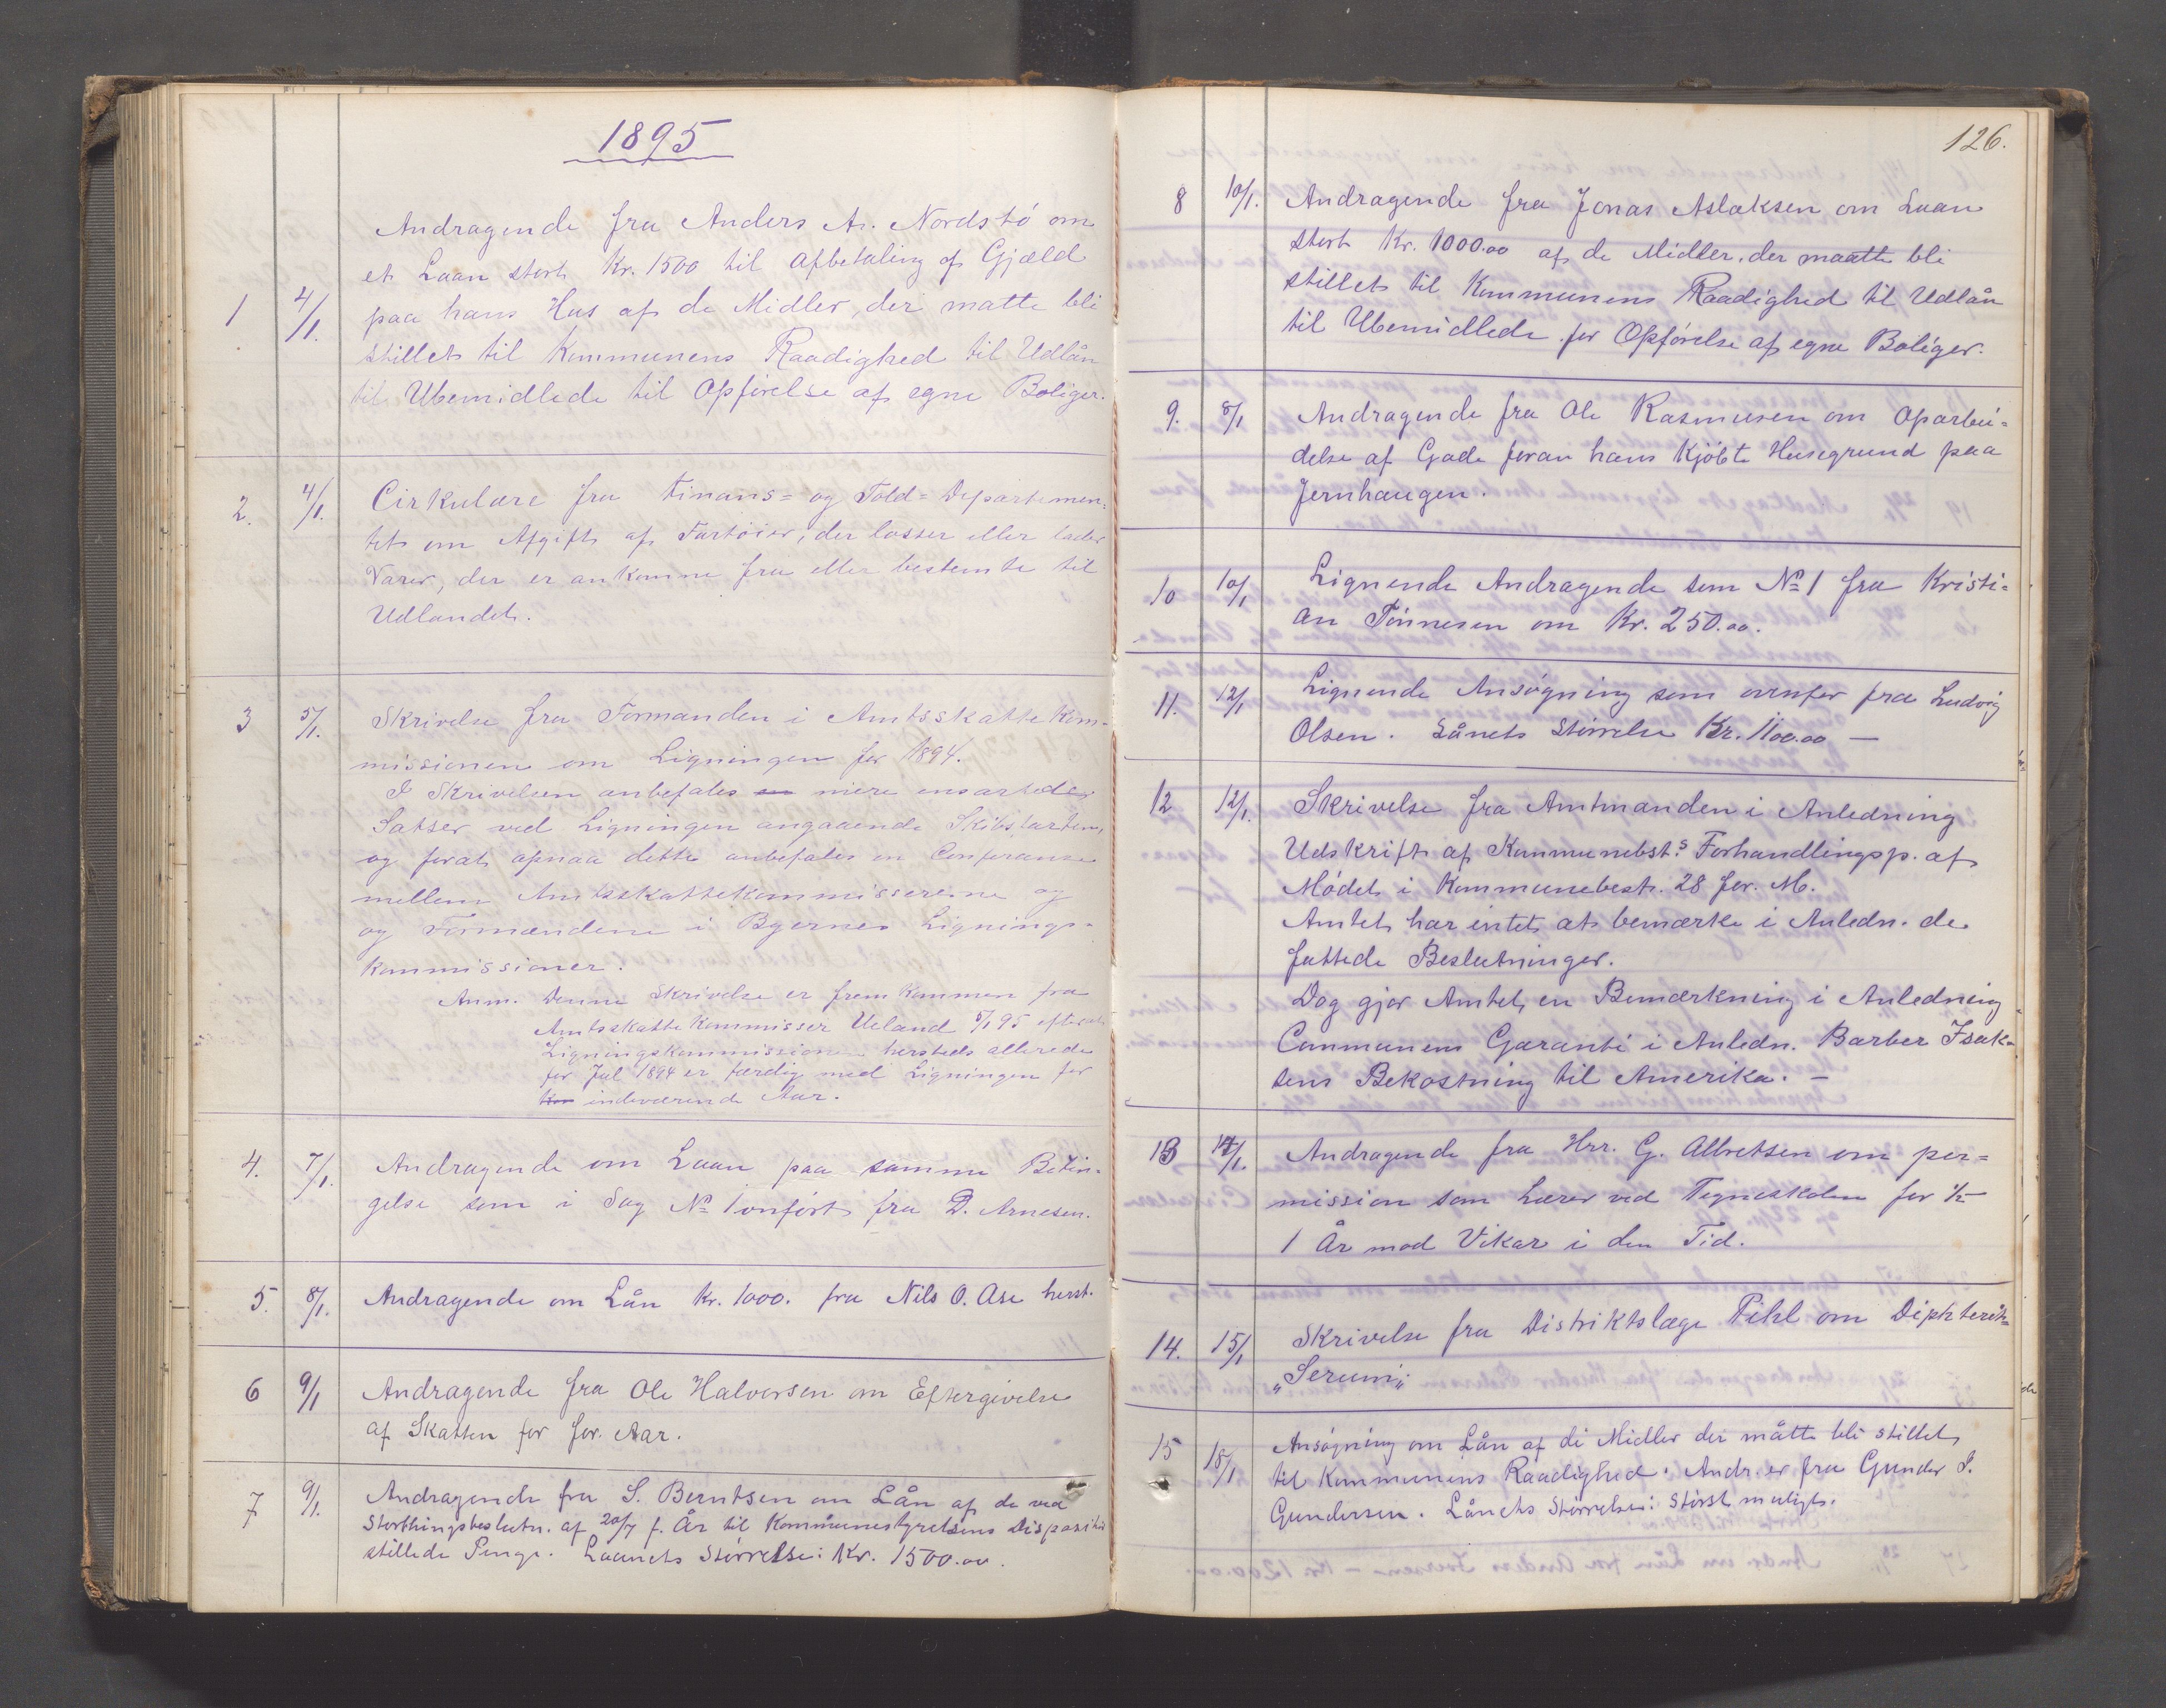 1895
Andragende fra Anders A. Nordstö om
et Laan stort Kr. 1500 til afbetaling af Gjæld
1 4/1. paa hans Hus af de Midler, der matte bli
stillet til Kommunens Raadighed til Udlån
til Ubemidlede til Opførelse af egne Boliger.
2. 4/1. Cirkulære fra Finans= og Told=Departemen=
tet om Afgift af Fartöier, der losser eller lader
Varer, der er ankomne fra eller bestemte til
Udlandet.
3 5/1. Skrivelse fra Formanden i Amtsskattekom-
missionen om Ligningen for 1894.
I Skrivelsen anbefales en mere ensartede
Satser ved Ligningen angaaende Skibsparten,
og forat opnaa dette anbefales en Conferanse
mellem Amtsskattekommissererne og
og Formændene i Byernes Lignings-
kommissioner.
Anm. Denne Skrivelse er fremkommen fra
Amtsskattekommisser Ueland 5/1 95 efterat
Ligningskommissionen hersteds allerede
før Jul 1894 er færdig med Ligningen for
indeværende Aar.
4. 7/1. Andragende om Laan paa samme Betin-
gelse som i Sag No 1 anført fra D. Arnesen.
5. 8/1. Andragende om Lån Kr. 1000. fra Nils O. Ase herst.
6 9/1 Andragende fra Ole Halvorsen om Eftergivelse
af Skatten for for. Aar.
7 9/1. Andragende fra S. Berntsen om Lån af de ved
Storthingsbeslutn. af 20/7 f. År til Kommunestyrelsens Disposition
stillede Penge. Laanets Størrelse: Kr. 1500.00.
126.
8 10/1. Andragende fra Jonas Aslaksen om Laan
stort Kr. 1000.00 af de Midler, der maatte bli
stillet til Kommunens Raadighed til Udlån
til Ubemidlede for Opførelse af egne Boliger.
9. 8/1 Andragende fra Ole Rasmusen om Oparbei=
delse af Gade foran hans Kjöbte Husegrund paa
Jernhaugen.
10 10/1 Lignende Andragende som No 1 fra Kristi=
an Tönnesen om Kr. 250.00.
11. 12/1 Lignende Ansøgning som ovenfor fra Ludvig
Olsen. Lånets Størrelse Kr. 1100.00 —
12 12/1. Skrivelse fra Amtmanden i Anledning
Udskrift af Kommunebst.s Forhandlingsp. af
Mödet i Kommunebest. 28 for. M.
Amtet har intet at bemærke i Anledn. de
fattede Beslutninger.
Dog gjør Amtet en Bemærkning i Anledning
Communens Garanti i Anledn. Barber Isak-
sens Bekostning til Amerika. —
13 14/1. Andragende fra Hrr. G. Albretsen om per=
mission som Lærer ved Tegneskolen for ½
1 År mod Vikar i den Tid.
14. 15/1 Skrivelse fra Distriktslæge Pihl om Diphterit=
„Serum„.
15 18/1 Ansøgning om Lån af de Midler der måtte bli stillet
til Kommunens Raadighed. Andr. er fra Gunder S.
Gundersen. Lånets Størrelse: Størst muligt.